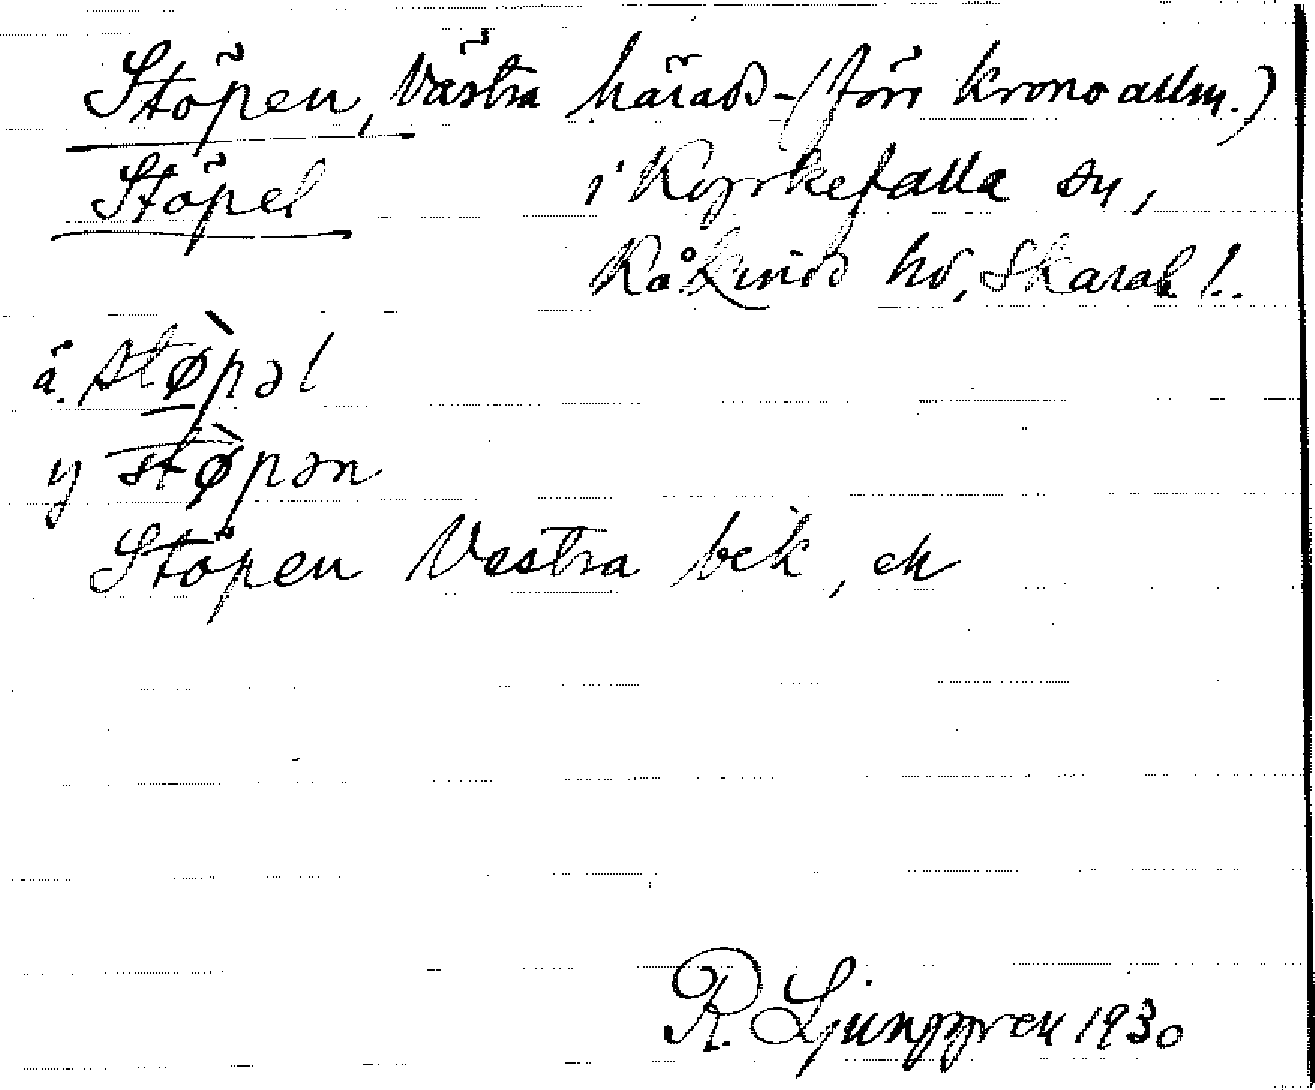 Stöpen, Västra härads-(förr kronoallm.)
Stöpel i Kyrkefalla sn,
Kåkinds hd, Skarab. l.
ä. stø̀pəl
y stø̀pən
Stöpen Västra bek, ek
R. Ljunggren 1930